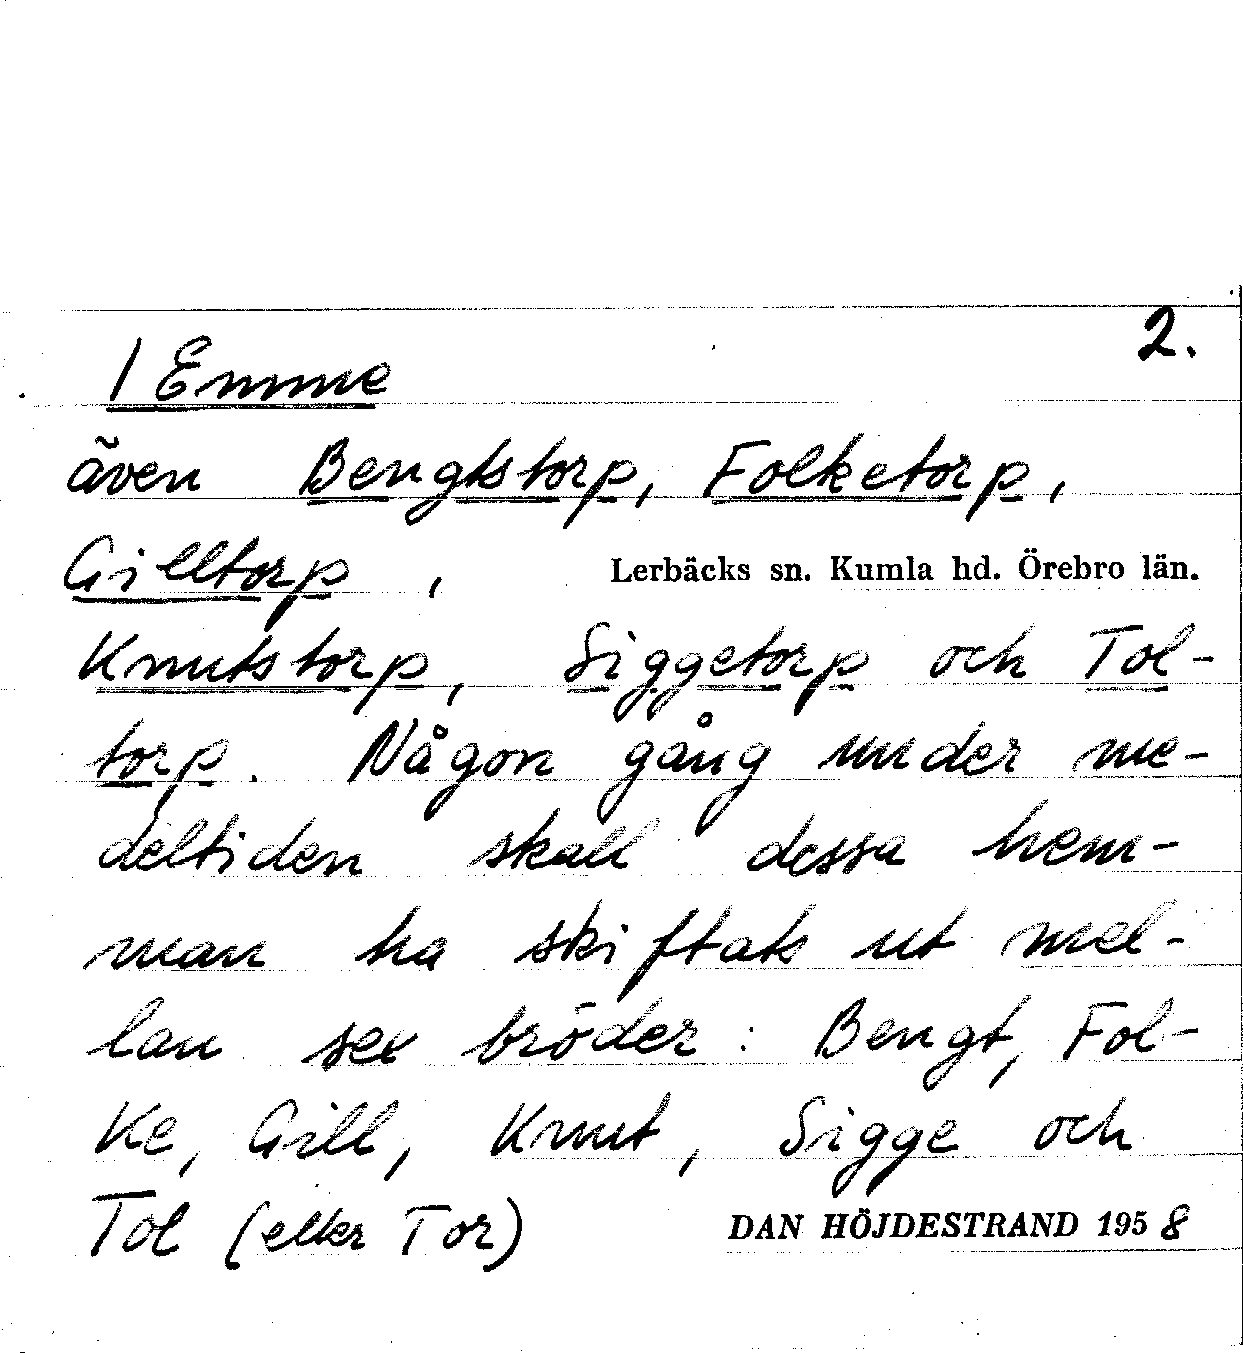 2.
I Emme
även Bengtstorp, Folketorp,
Gilltorp, Lerbäcks sn. Kumla hd. Örebro län.
Knutstorp, Siggetorp och Tol-
torp. Någon gång under me-
deltiden skall dessa hem-
man ha skiftats ut mel-
lan sex bröder: Bengt, Fol-
ke, Gill, Knut, Sigge och
Tol (eller Tor) DAN HÖJDESTRAND 1958